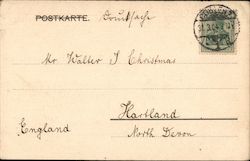 POSTKARTE. Drucksache
Mr Walter J Christmas
Hartland
England
North Devon